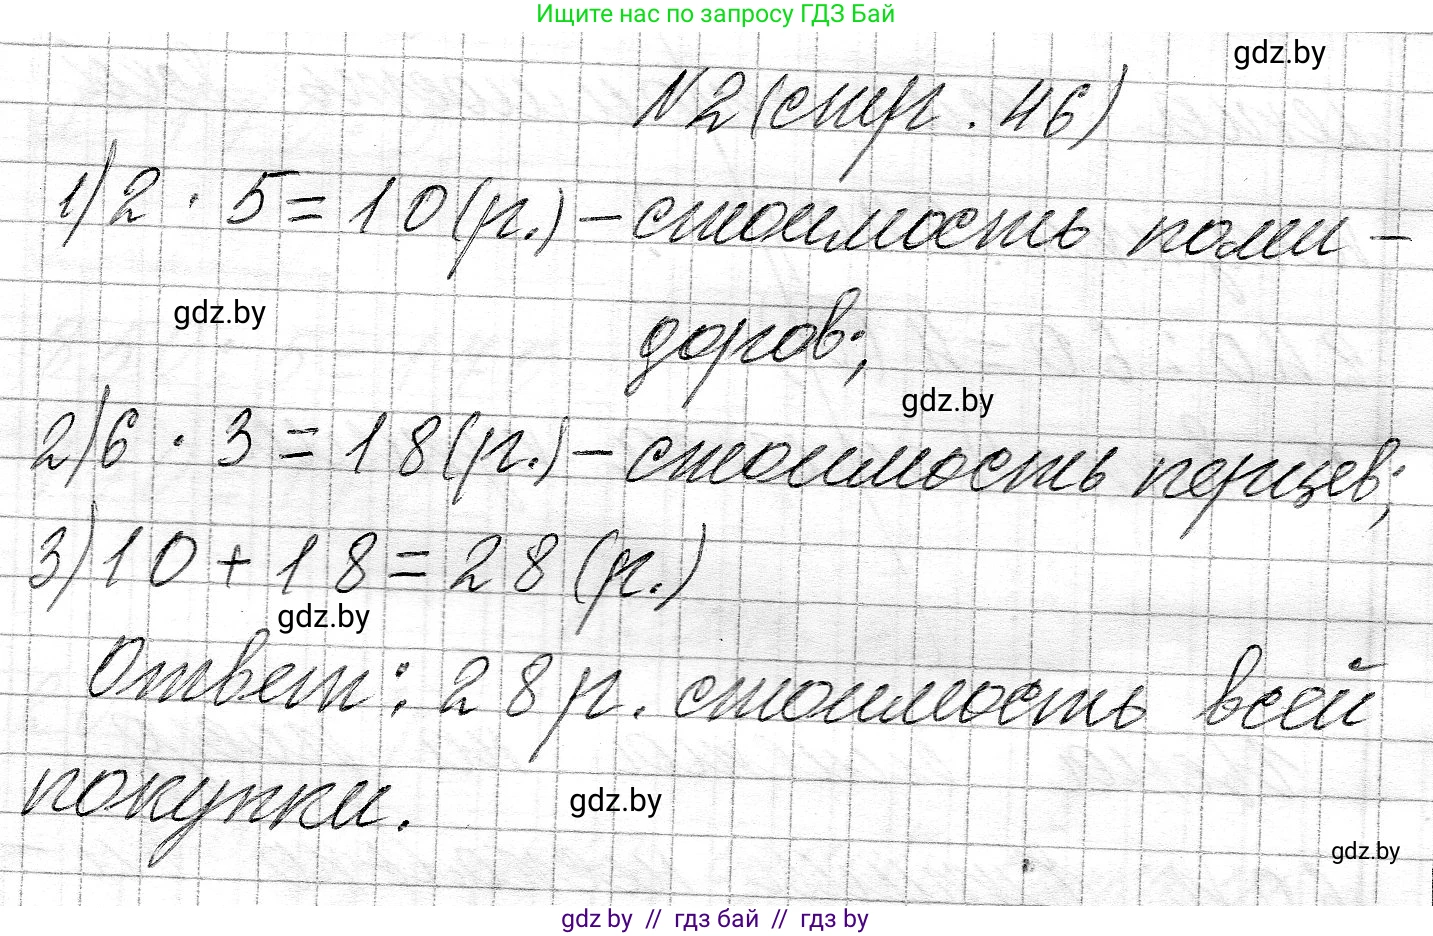 Ищите нас по запросу ГДЗ Бай
gdz.by
№2 (стр. 46)
1) 2 · 5 = 10 (р.) – стоимость поми-
gdz.by
доров;
gdz.by
2) 6 · 3 = 18 (р.) – стоимость перцев;
3) 10 + 18 = 28 (р.)
gdz.by
Ответ: 28 р. стоимость всей
покупки.
gdz.by
gdz.by
gdz.by // гдз бай // гдз by